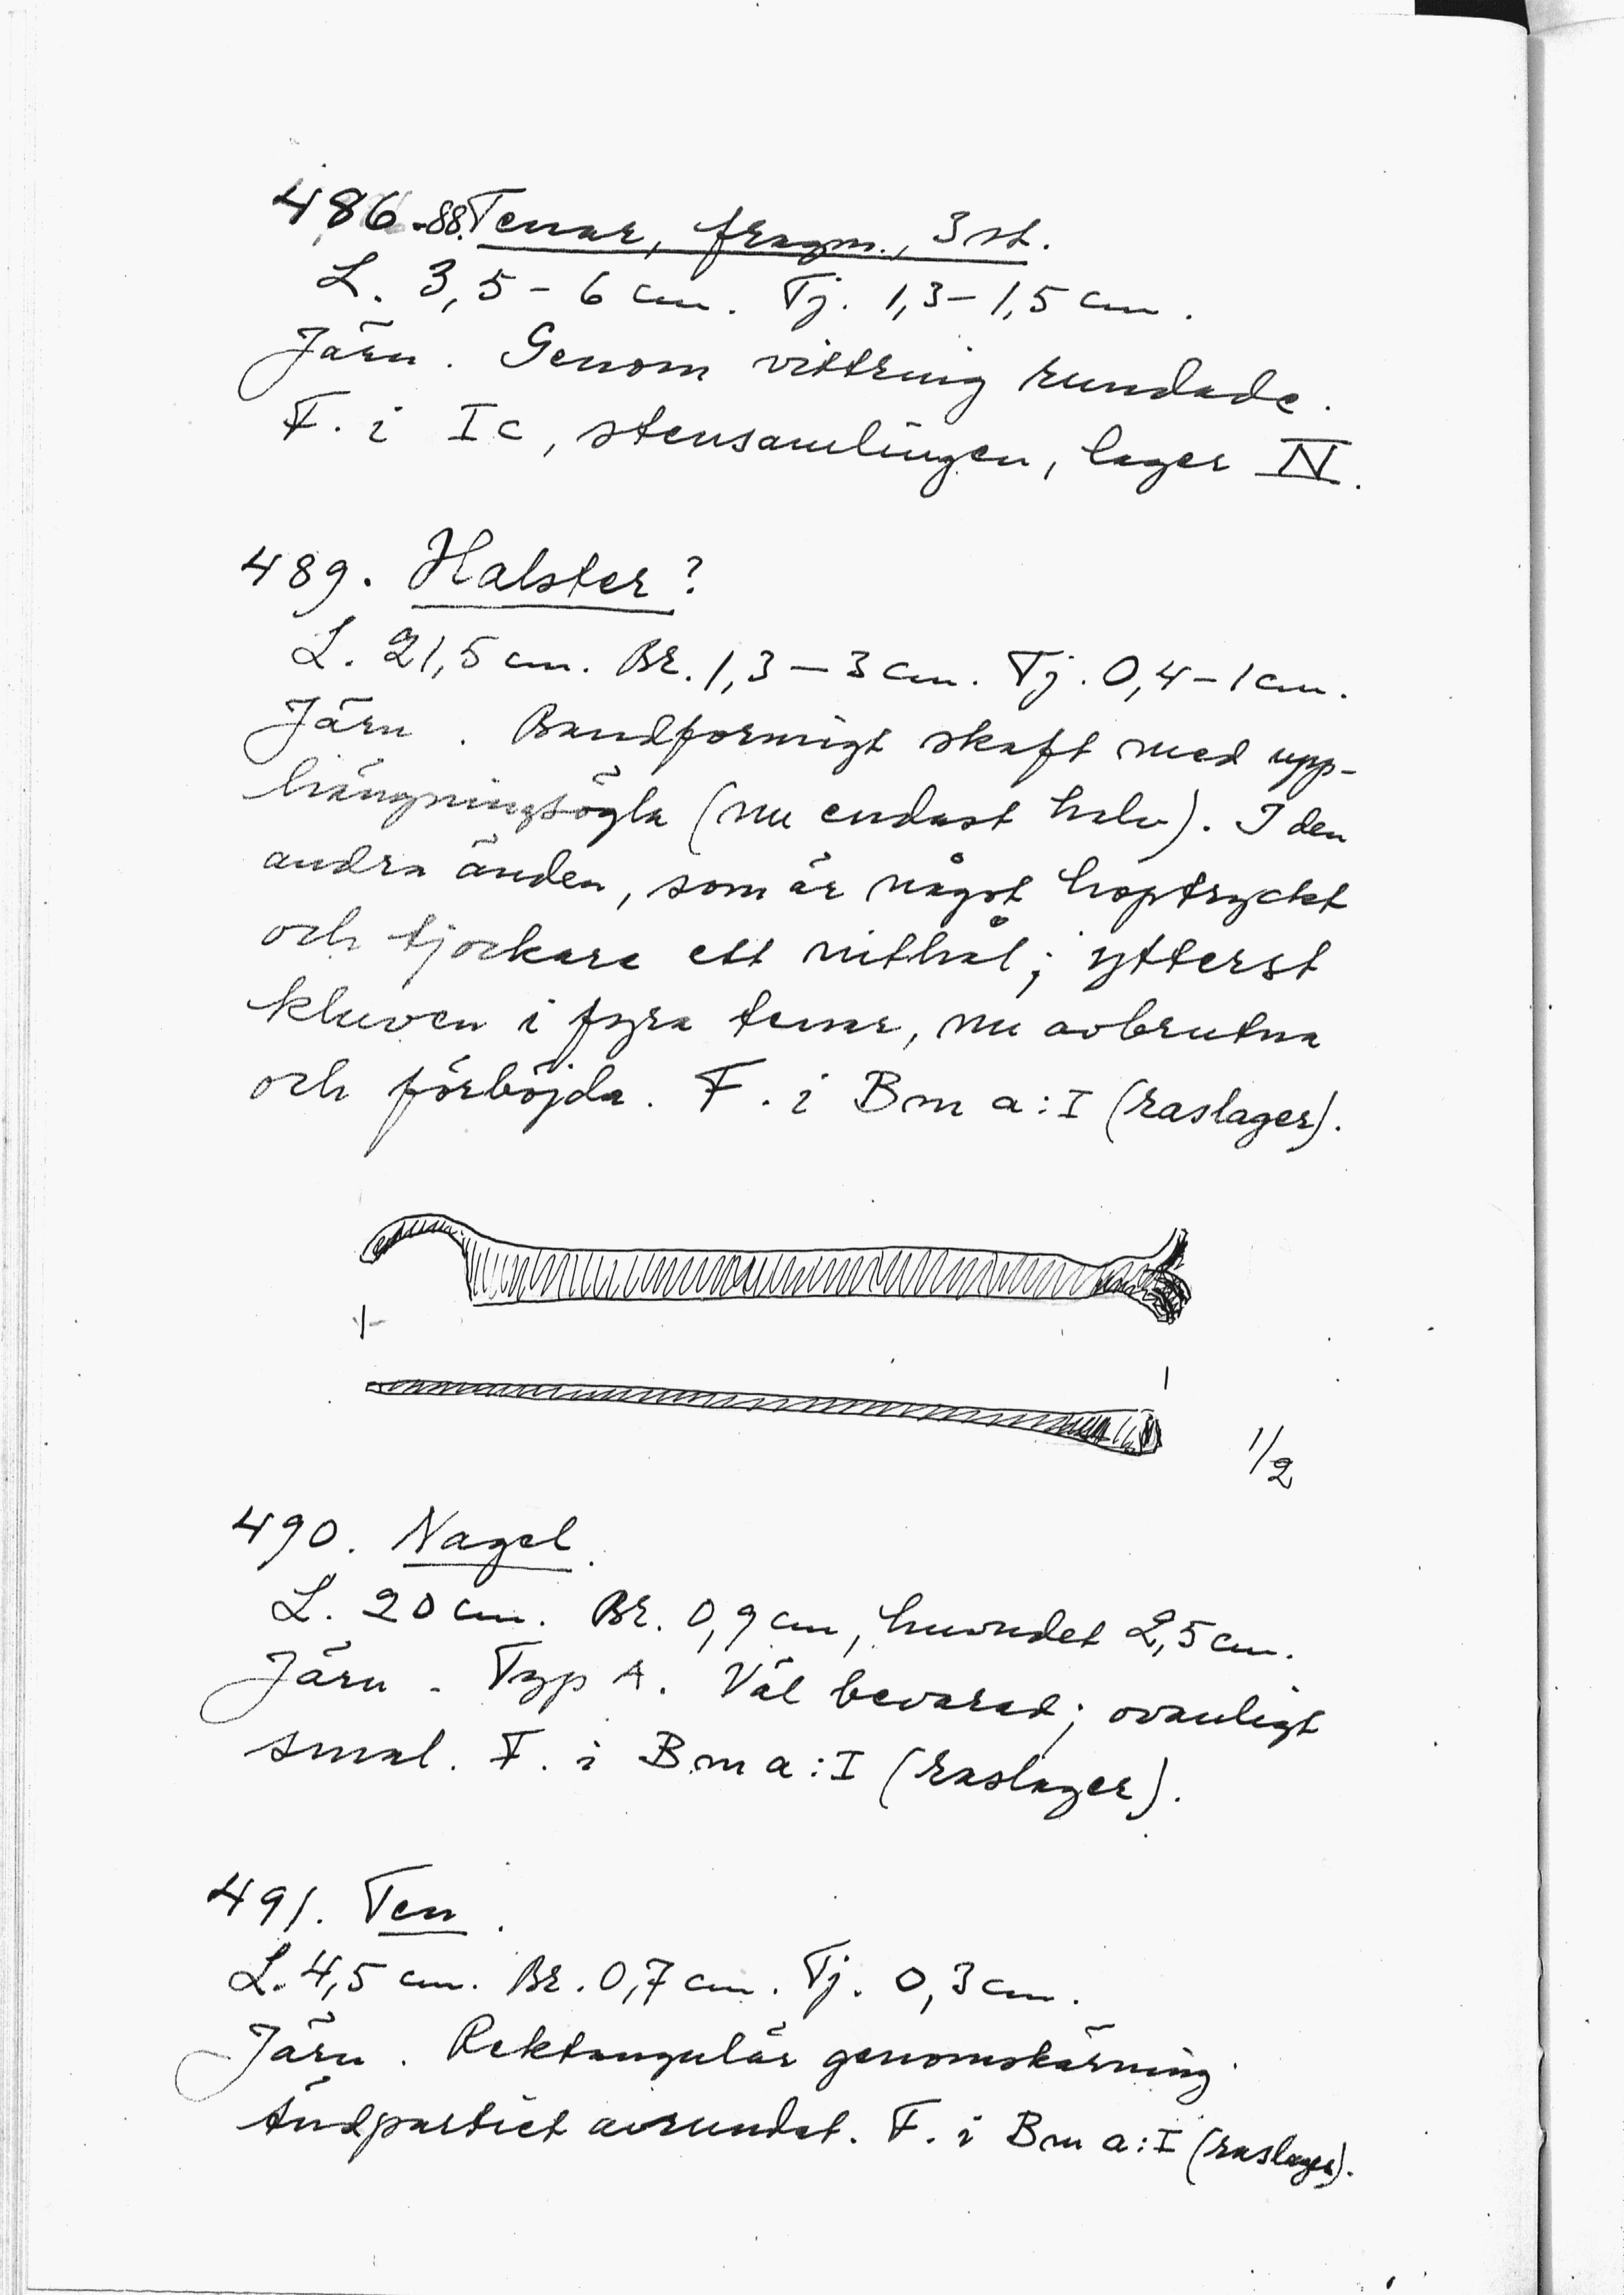 486-88. Tenar, fragm., 3 st.
L. 3,5 - 6 cm. Tj. 1,3 - 1,5 cm.
Järn. Genom vittring rundade.
F. i Ic, stensamlingen, lager IV.
489. Halster?
L. 21,5 cm. Br. 1,3 - 3 cm. Tj. 0,4 - 1 cm.
Järn. Bandformigt skaft med upp-
hängningsögla (nu endast halv). I den
andra änden, som är något hoptryckt
och tjockare ett nithål; ytterst
kluven i fyra tenar, nu avbrutna
och förböjda. F. i Bm a:I (raslager).
1/2
490. Nagel.
L. 20 cm. Br. 0,9 cm, huvudet 2,5 cm.
Järn. Typ A. Väl bevarad; ovanligt
smal. F. i Bm a:I (raslager).
491. Ten.
L. 4,5 cm. Br. 0,7 cm. Tj. 0,3 cm.
Järn. Rektangulär genomskärning.
Ändpartiet avrundat. F. i Bm a:I (raslager).